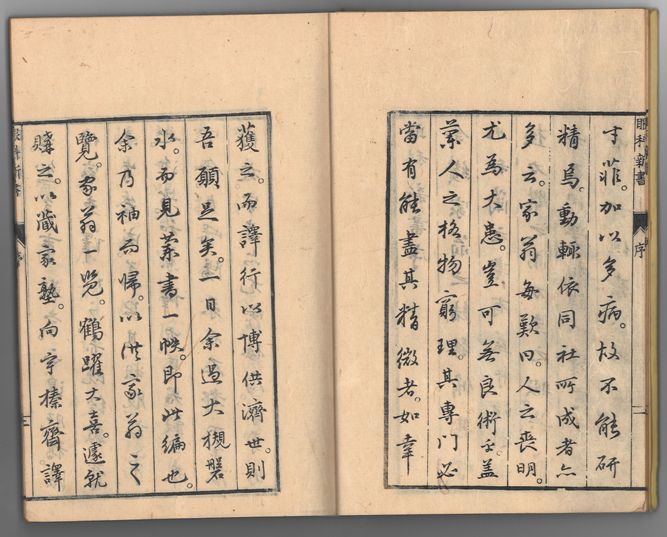 眼科新書 序
才菲。加以多病。故不能研
精焉。動輒依同社所成者亦
多云。家翁每歎曰。人之喪明。
尤為大患。豈可無良術乎。蓋
蘭人之格物窮理。其專門必
當有能盡其精微者。如幸
獲之。而譯行以博供濟世。則
吾願足矣。一日余過大槻磐
水。而見蘭書一帙。即此編也。
余乃袖而歸。以供家翁之
覽。家翁一覧。鶴躍大喜。遽就
購之。以藏家塾。向宇榛齋譯
眼科新書 序 三